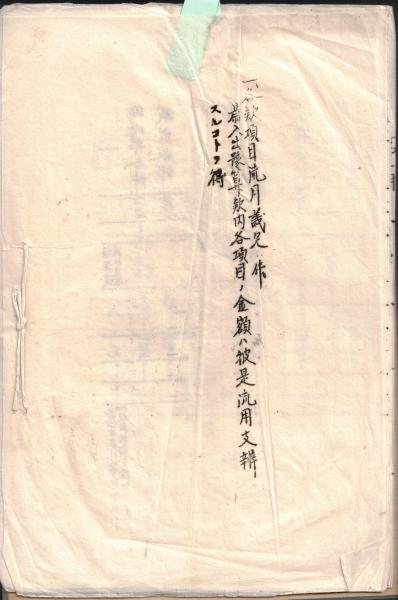 一、各款項目流用議定ノ件
歳入出豫算各款内各項目ノ金額ハ彼是流用支辨
スルコトヲ得